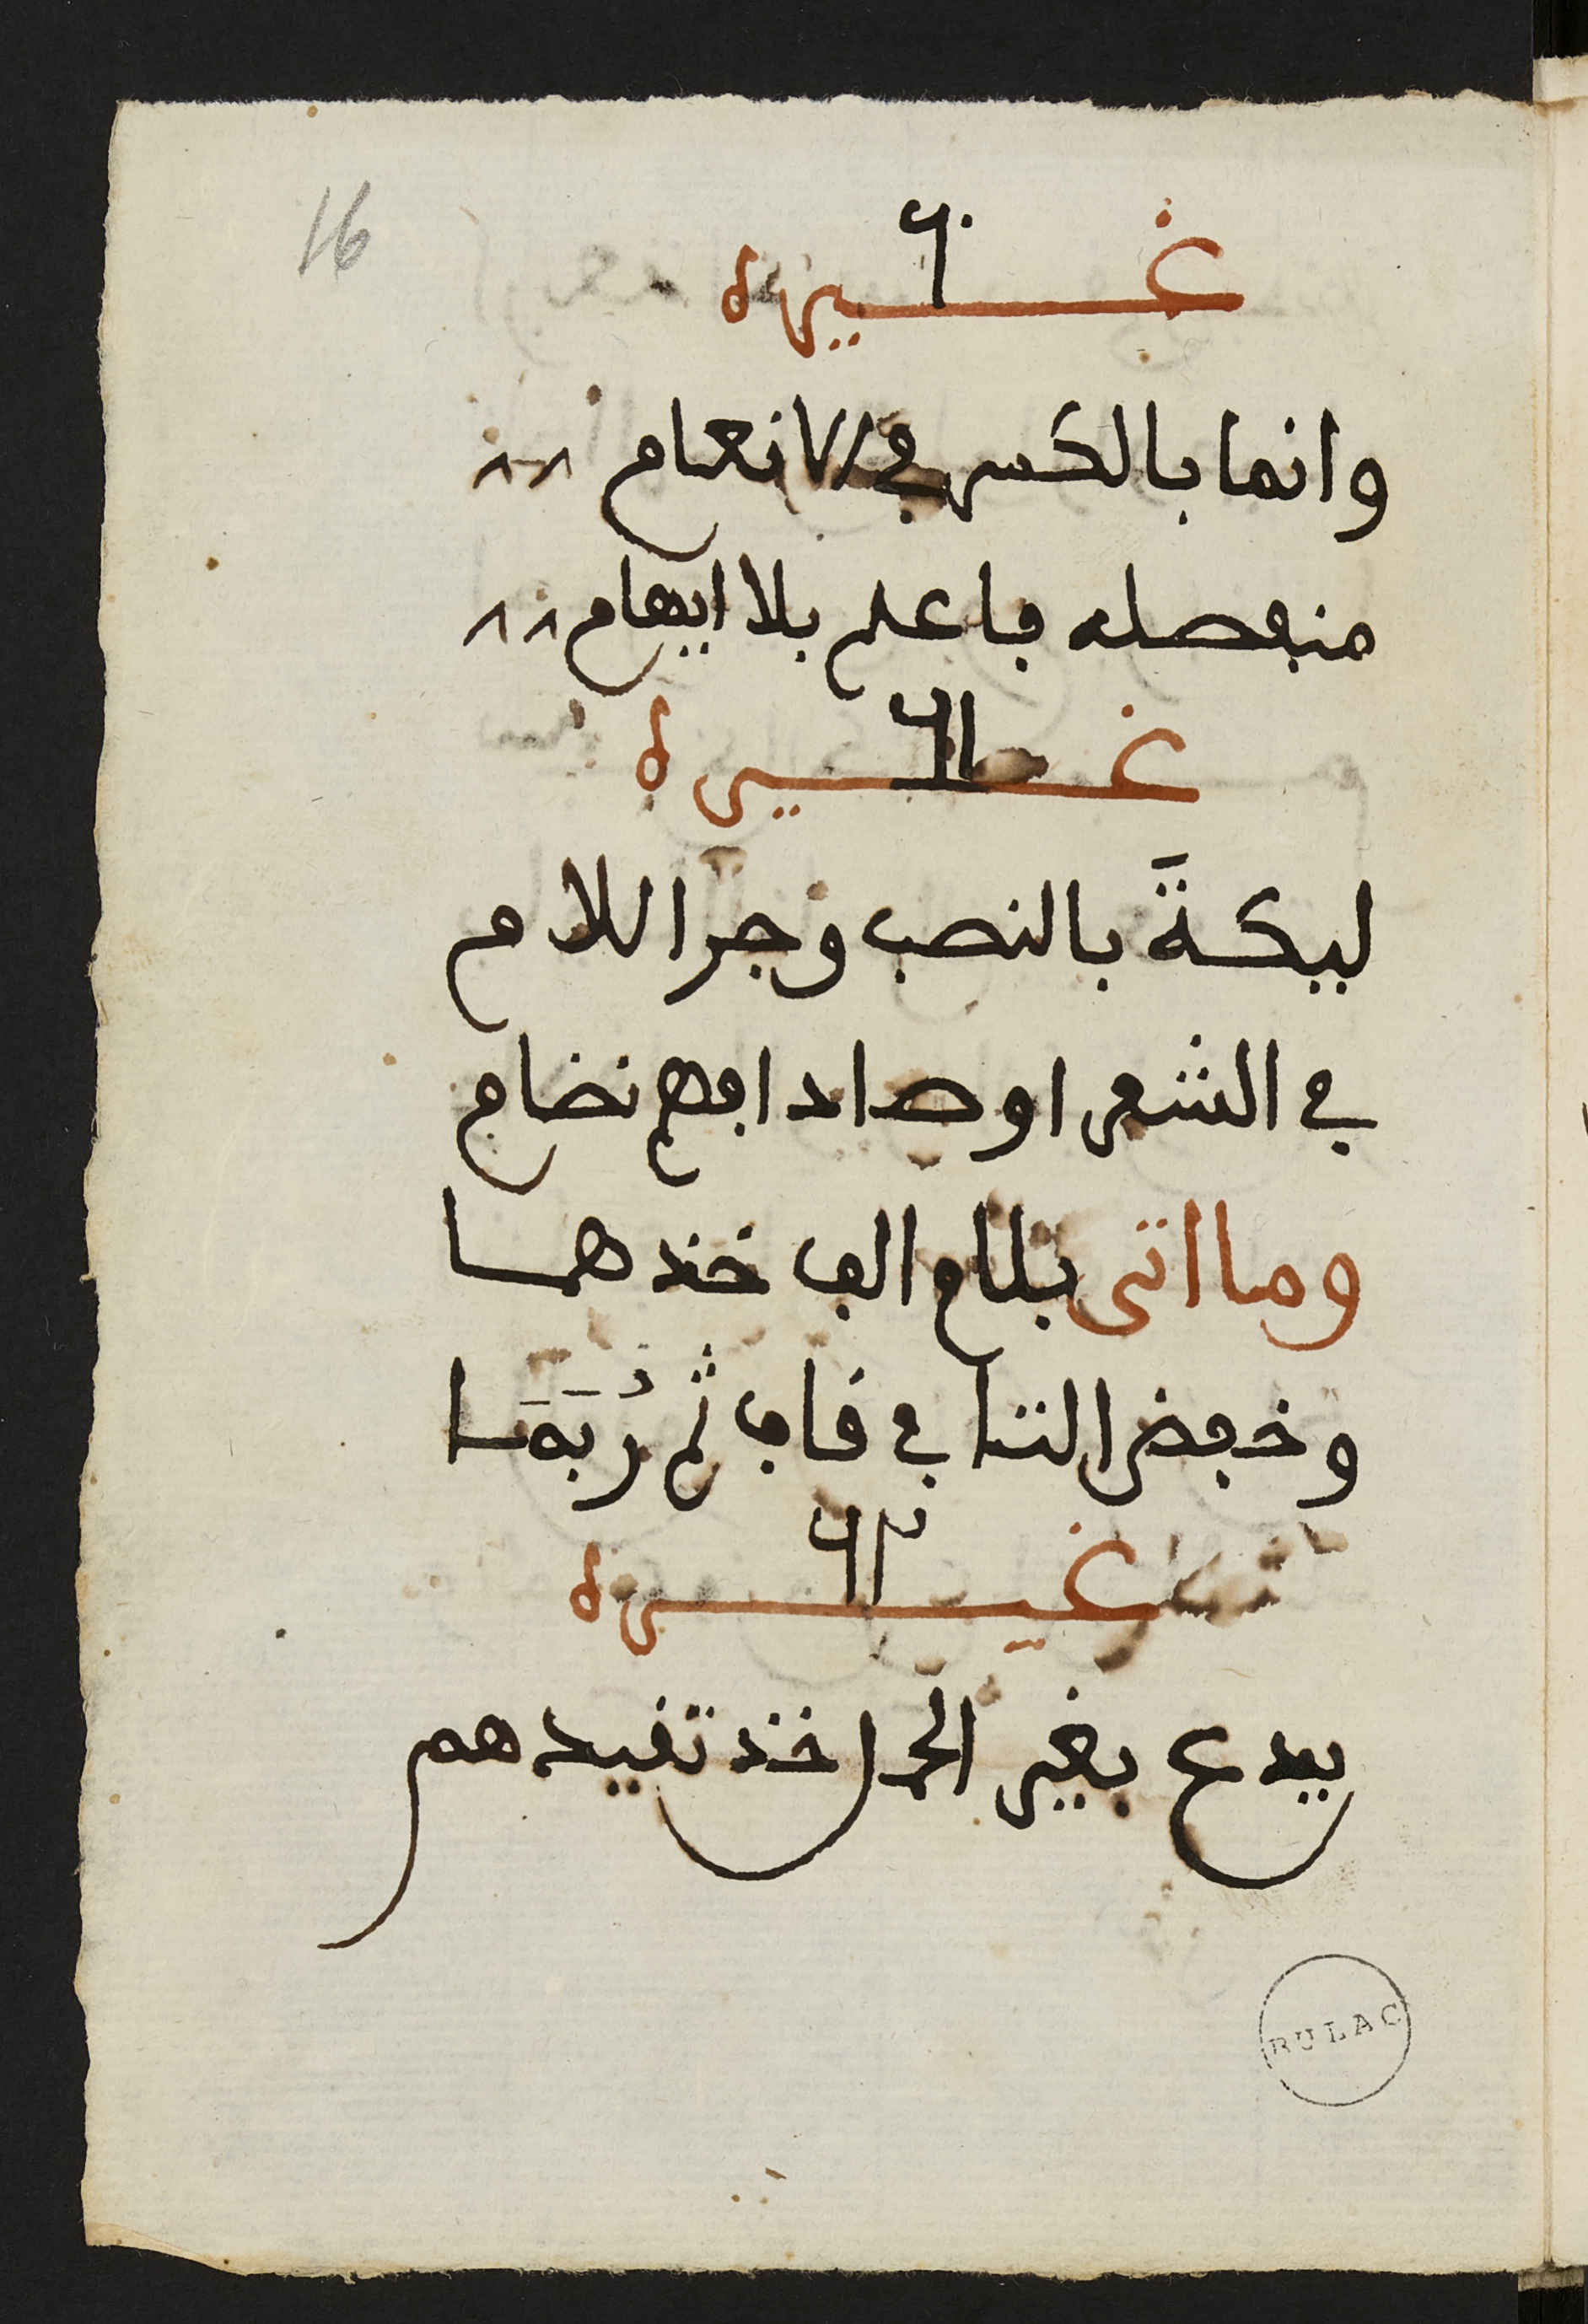 16
٦٠
غيره
وانما بالكسر في الانعام
منفصله فاعلم بلا ايهام
٦١
غيره
ليكةَ بالنصب وجر اللام
في الشعرا وصاد افهم نضام
وما اتى بلام الف خذ هما
وخفض التا في قاف ثم رُبَمَا
٦٢
غيره
يدع بغير الحر اخذ تفيدهم
BULAC